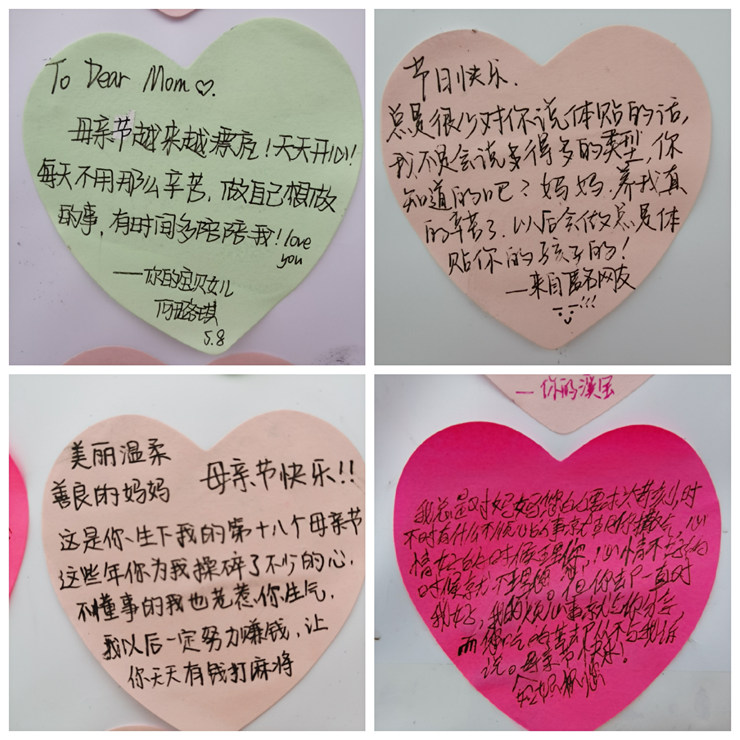 To Dear Mom♡.
母亲节越来越漂亮!天天开心!
每天不用那么辛苦,做自己想做
的事,有时间多陪陪我!love
you
——你的宝贝女儿
5.8
节日快乐.
总是很少对你说体贴的话,
我不是会说多得多的类型,你
知道的吧?妈妈.养我真
的辛苦了.以后会做总是体
贴你的孩子的!
—来自匿名网友
美丽温柔
善良的妈妈
母亲节快乐!!
这是你生下我的第十八个母亲节
这些年你为我操碎了不少的心,
不懂事的我也老惹你生气,
我以后一定努力赚钱,让
你天天有钱打麻将
—你的
我总是对妈妈您的要求次等别,时
不时有什么不顺心的事就
情好的时候理你,心情不好的
时候就不理您。但你却一直对
我好,我的烦心事就与你分享,
而您吃的苦却从不与我诉
说。母亲节快乐!